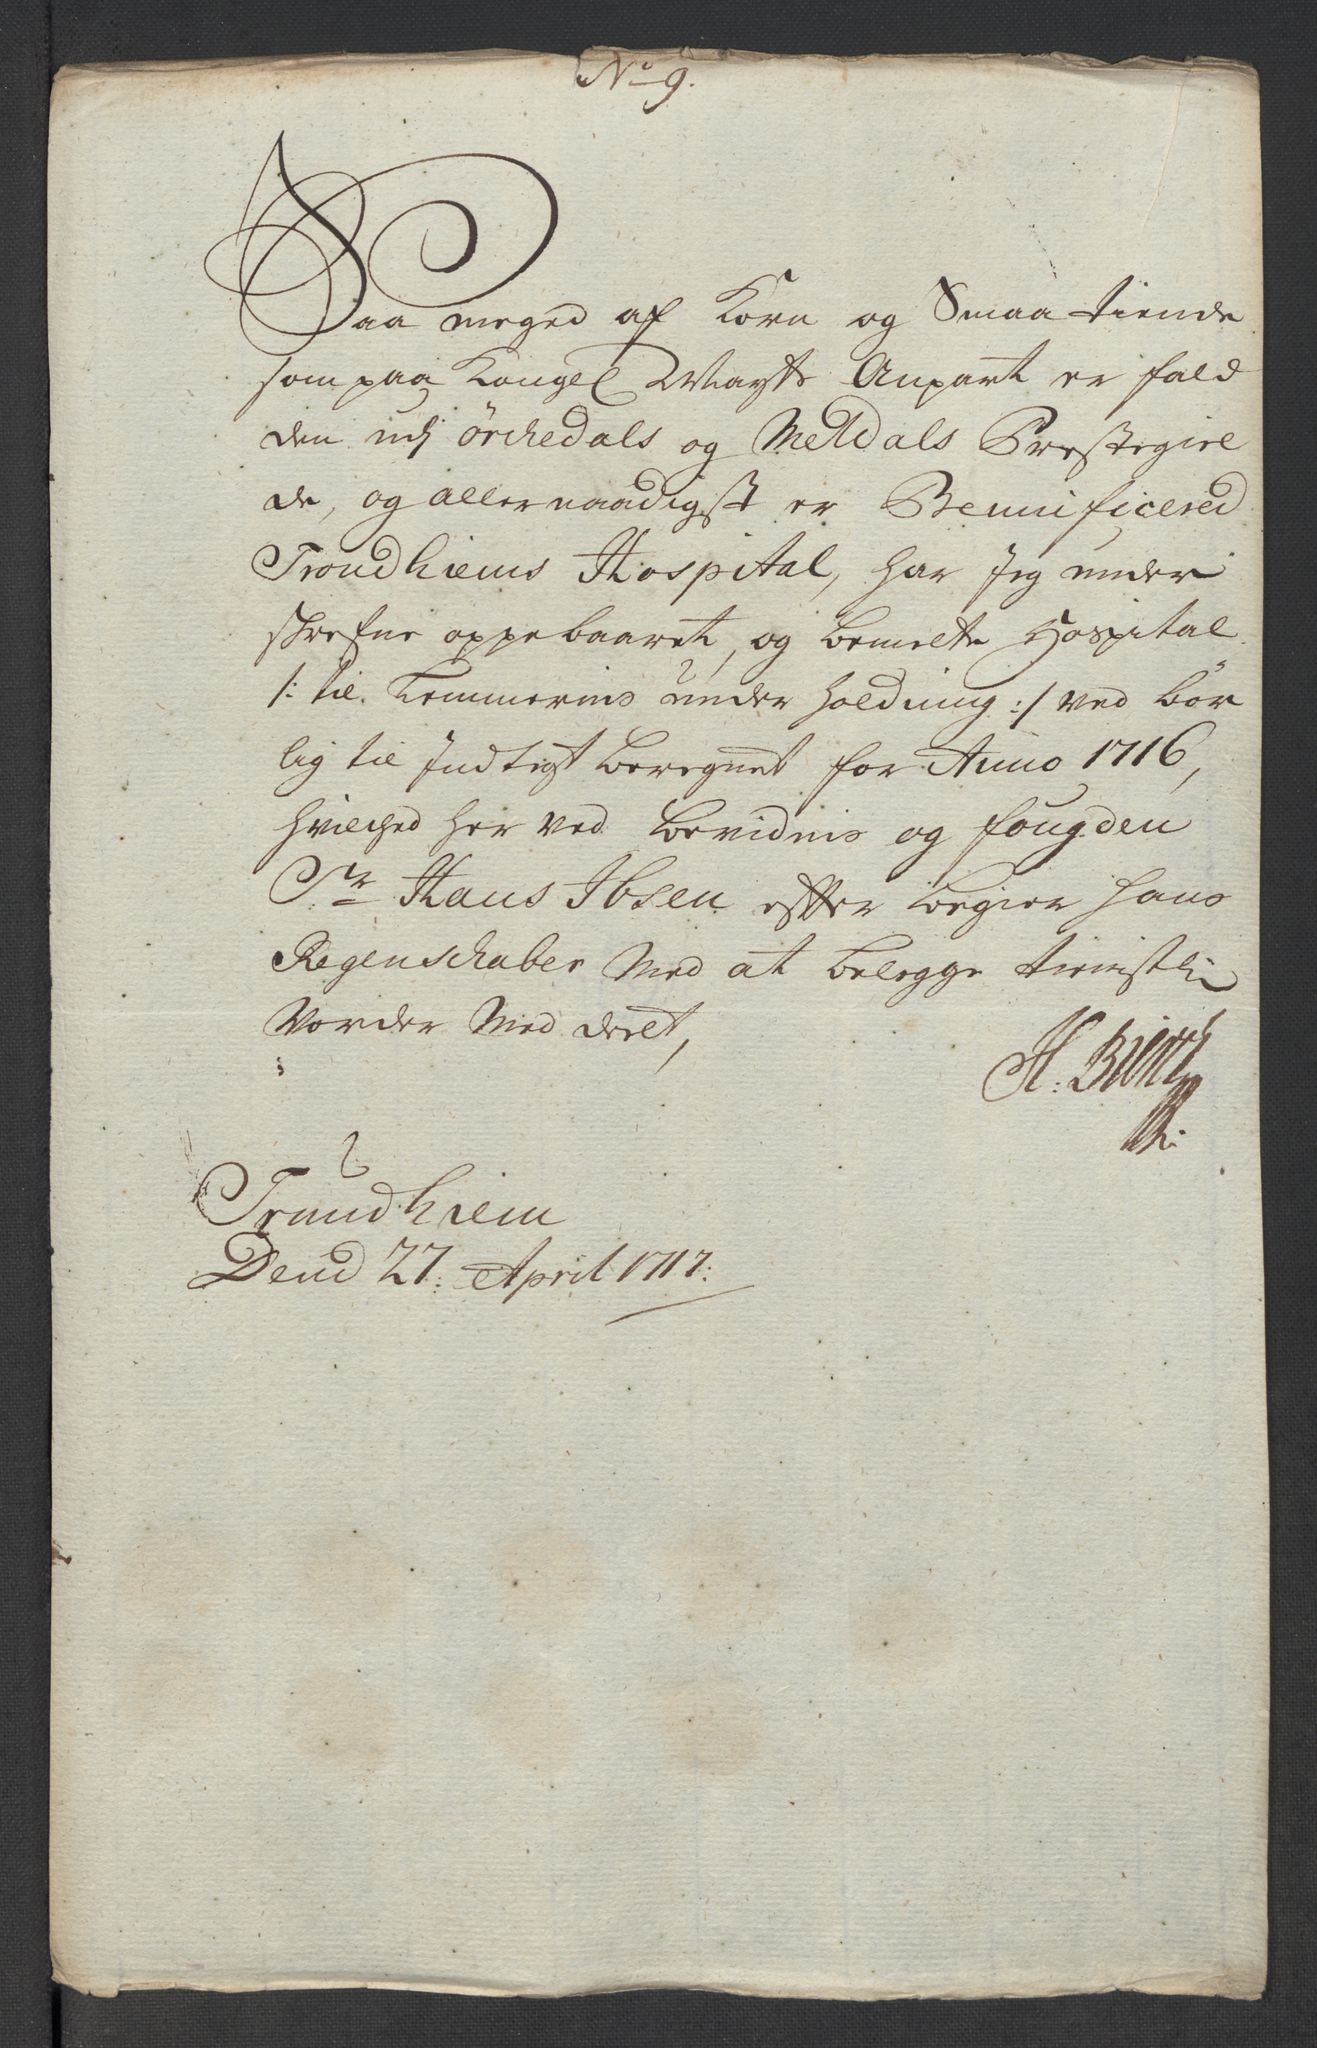 No 9.
Saa meged af Korn og Smaa tiende
som paa Kongel Mayts Anpart er fald
den udj Örchedals og Meldals Prestegiel
de, og allernaadigst er Bennificered
Trondhiems Hospital, har Jeg under
skrefne oppebaaret, og bemelte Hospital
/: til Lemmernis underholdning :/ ved bör
lig til Indtegt beregnet for Anno 1716,
hvilched her ved bevidnis og fougden
Sr Hans Ibsen efter begier hans
Regenschaber Med at belegge
Vorder Med deelt,
H:
Trundhiem
Dend 27: April 1717: